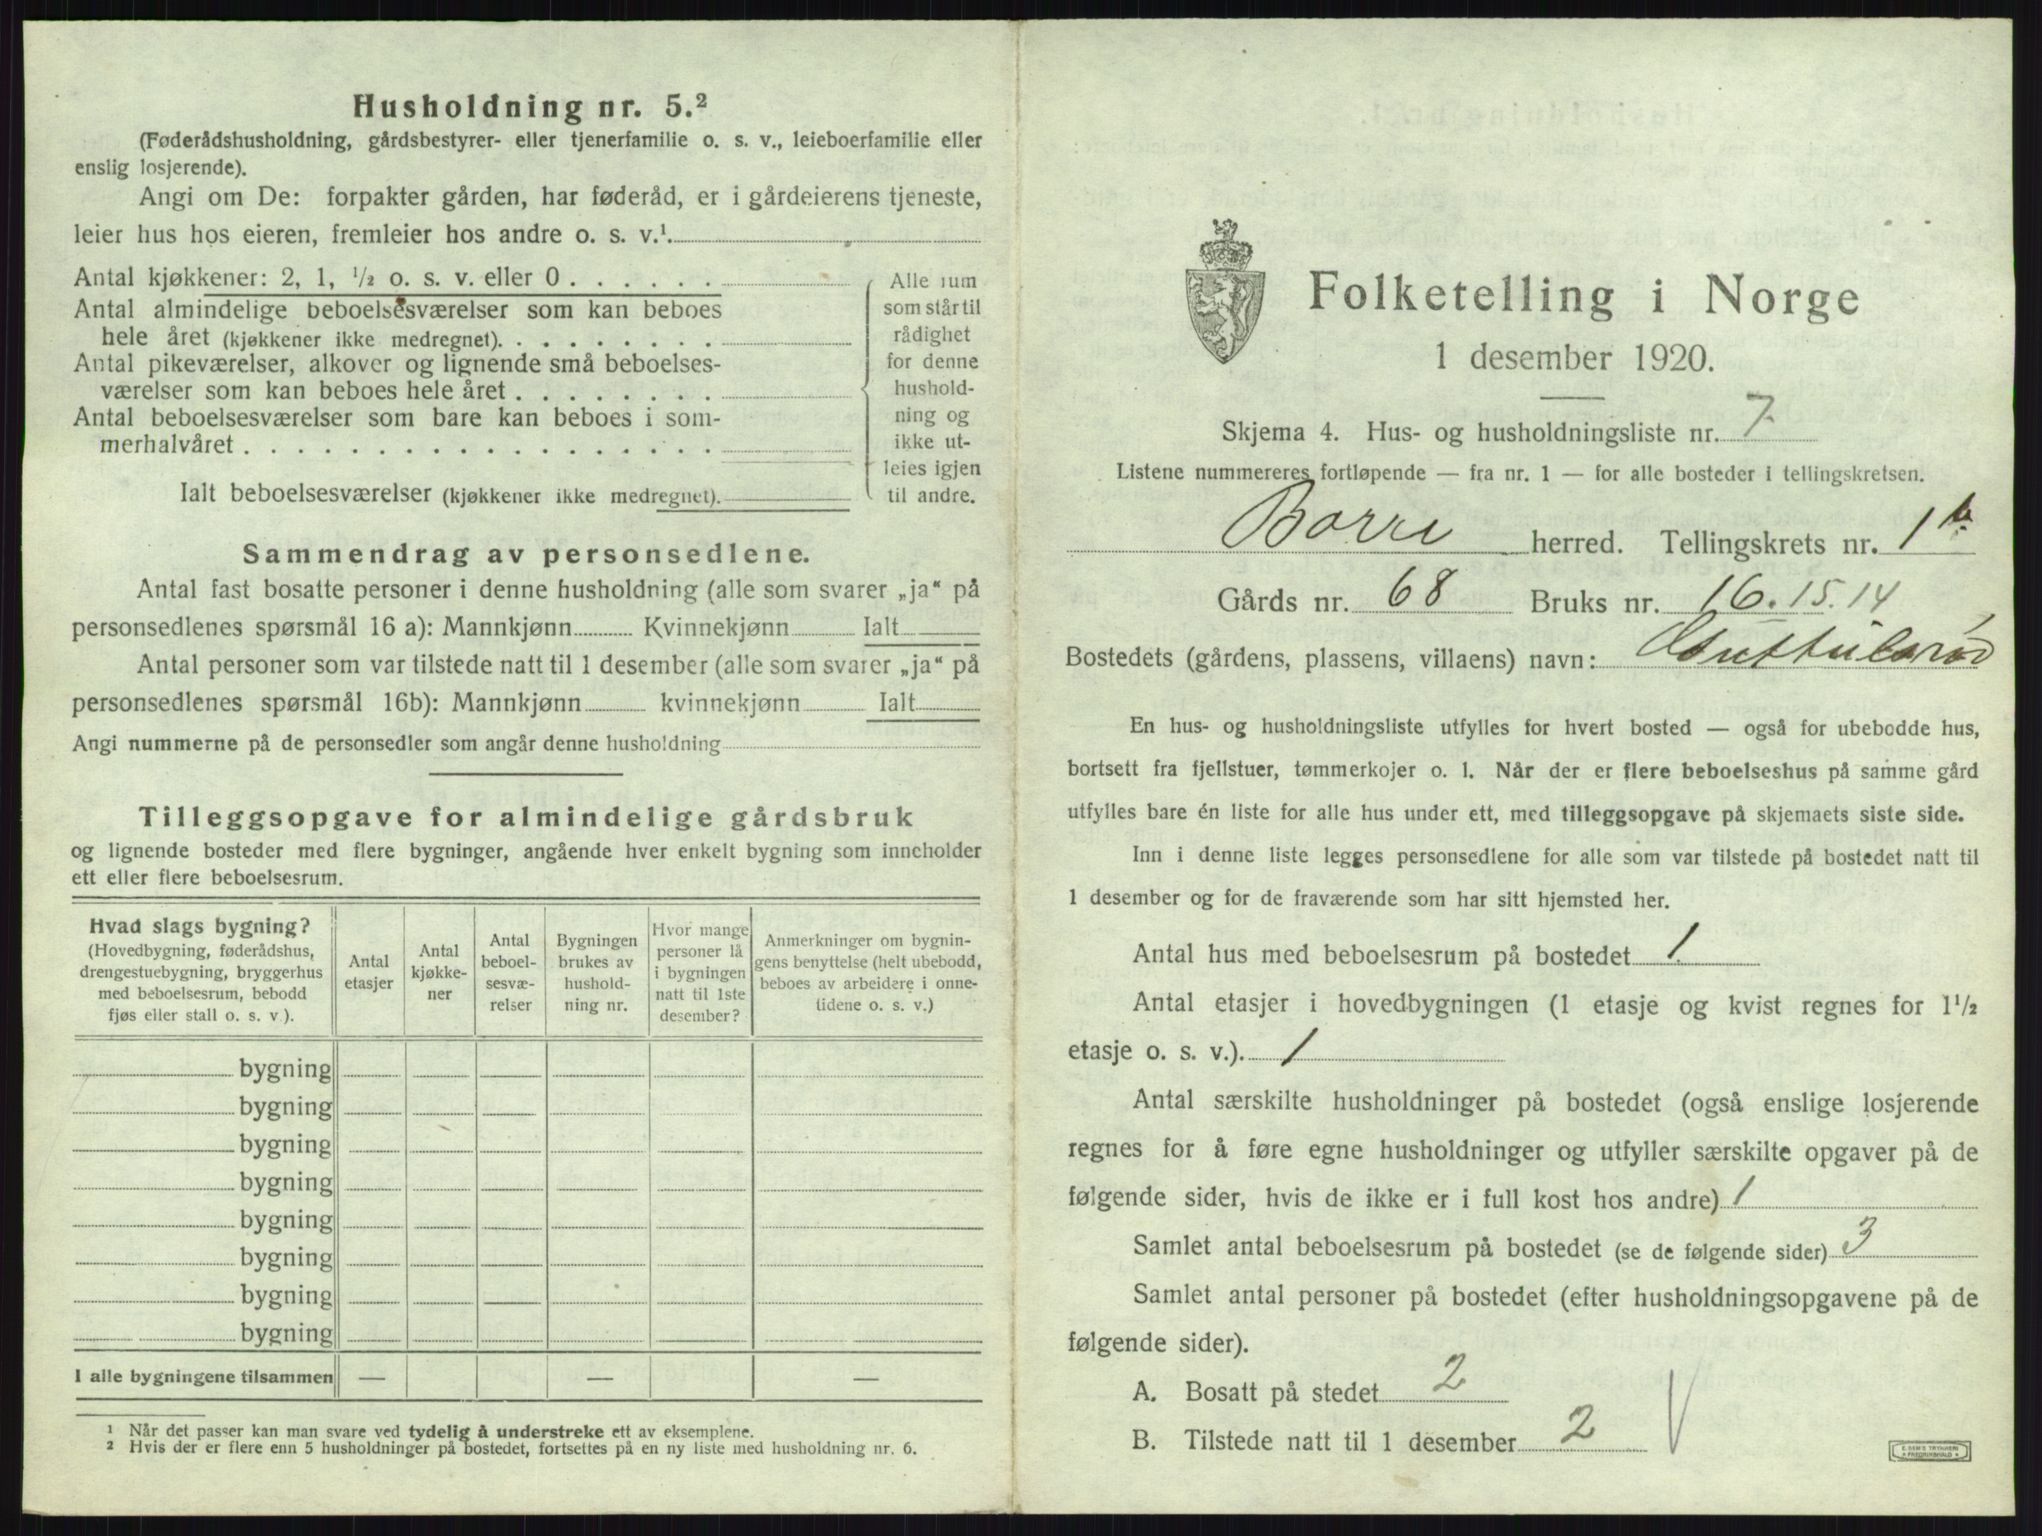 Husholdning nr. 5.²
(Føderådshusholdning, gårdsbestyrer- eller tjenerfamilie o. s. v., leieboerfamilie eller
enslig losjerende).
Angi om De: forpakter gården, har føderåd, er i gårdeierens tjeneste,
leier hus hos eieren, fremleier hos andre o. s. v.¹.
Antal kjøkkener: 2, 1, ½ o. s. v. eller 0 . . . . . .
Antal almindelige beboelsesværelser som kan beboes
hele året (kjøkkener ikke medregnet). . . . . . . . .
Antal pikeværelser, alkover og lignende små beboelses-
værelser som kan beboes hele året . . . . . . . .
Antal beboelsesværelser som bare kan beboes i som-
merhalvåret . . . . . . . . . . . . . . . . . .
Ialt beboelsesværelser (kjøkkener ikke medregnet).
Alle rum
som står til
rådighet
for denne
hushold-
ning og
ikke ut-
leies igjen
til andre.
Sammendrag av personsedlene.
Antal fast bosatte personer i denne husholdning (alle som svarer „ja“ på
personsedlenes spørsmål 16 a): Mannkjønn Kvinnekjønn Ialt
Antal personer som var tilstede natt til 1 desember (alle som svarer „ja“ på
personsedlenes spørsmål 16b): Mannkjønn kvinnekjønn Ialt
Angi nummerne på de personsedler som angår denne husholdning
Tilleggsopgave for almindelige gårdsbruk
og lignende bosteder med flere bygninger, angående hver enkelt bygning som inneholder
ett eller flere beboelsesrum.
Hvad slags bygning?
(Hovedbygning, føderådshus,
drengestuebygning, bryggerhus
med beboelsesrum, bebodd
fjøs eller stall o. s. v.).
Antal
etasjer
Antal
kjøkke-
ner
Antal
beboel-
sesvæ-
relser
Bygningen
brukes av
hushold-
ning nr.
Hvor mange
personer lå
i bygningen
natt til 1ste
desember?
Anmerkninger om bygnin-
gens benyttelse (helt ubebodd,
beboes av arbeidere i onne-
tidene o. s. v.)
bygning
bygning
bygning
bygning
bygning
bygning
bygning
bygning
I alle bygningene tilsammen — — —
¹ Når det passer kan man svare ved tydelig å understreke ett av eksemplene.
² Hvis der er flere enn 5 husholdninger på bostedet, fortsettes på en ny liste med husholdning nr. 6.
Folketelling i Norge
1 desember 1920.
Skjema 4. Hus- og husholdningsliste nr. 7
Listene nummereres fortløpende — fra nr. 1 — for alle bosteder i tellingskretsen.
Borre herred. Tellingskrets nr. 1 b.
Gårds nr. 68 Bruks nr. 16. 15. 14
Bostedets (gårdens, plassens, villaens) navn:
En hus- og husholdningsliste utfylles for hvert bosted — også for ubebodde hus,
bortsett fra fjellstuer, tømmerkojer o. l. Når der er flere beboelseshus på samme gård
utfylles bare én liste for alle hus under ett, med tilleggsopgave på skjemaets siste side.
Inn i denne liste legges personsedlene for alle som var tilstede på bostedet natt til
1 desember og for de fraværende som har sitt hjemsted her.
Antal hus med beboelsesrum på bostedet 1.
Antal etasjer i hovedbygningen (1 etasje og kvist regnes for 1½
etasje o. s. v.). 1
Antal særskilte husholdninger på bostedet (også enslige losjerende
regnes for å føre egne husholdninger og utfyller særskilte opgaver på de
følgende sider, hvis de ikke er i full kost hos andre) 1
Samlet antal beboelsesrum på bostedet (se de følgende sider) 3
Samlet antal personer på bostedet (efter husholdningsopgavene på de
følgende sider).
A. Bosatt på stedet 2
B. Tilstede natt til 1 desember 2